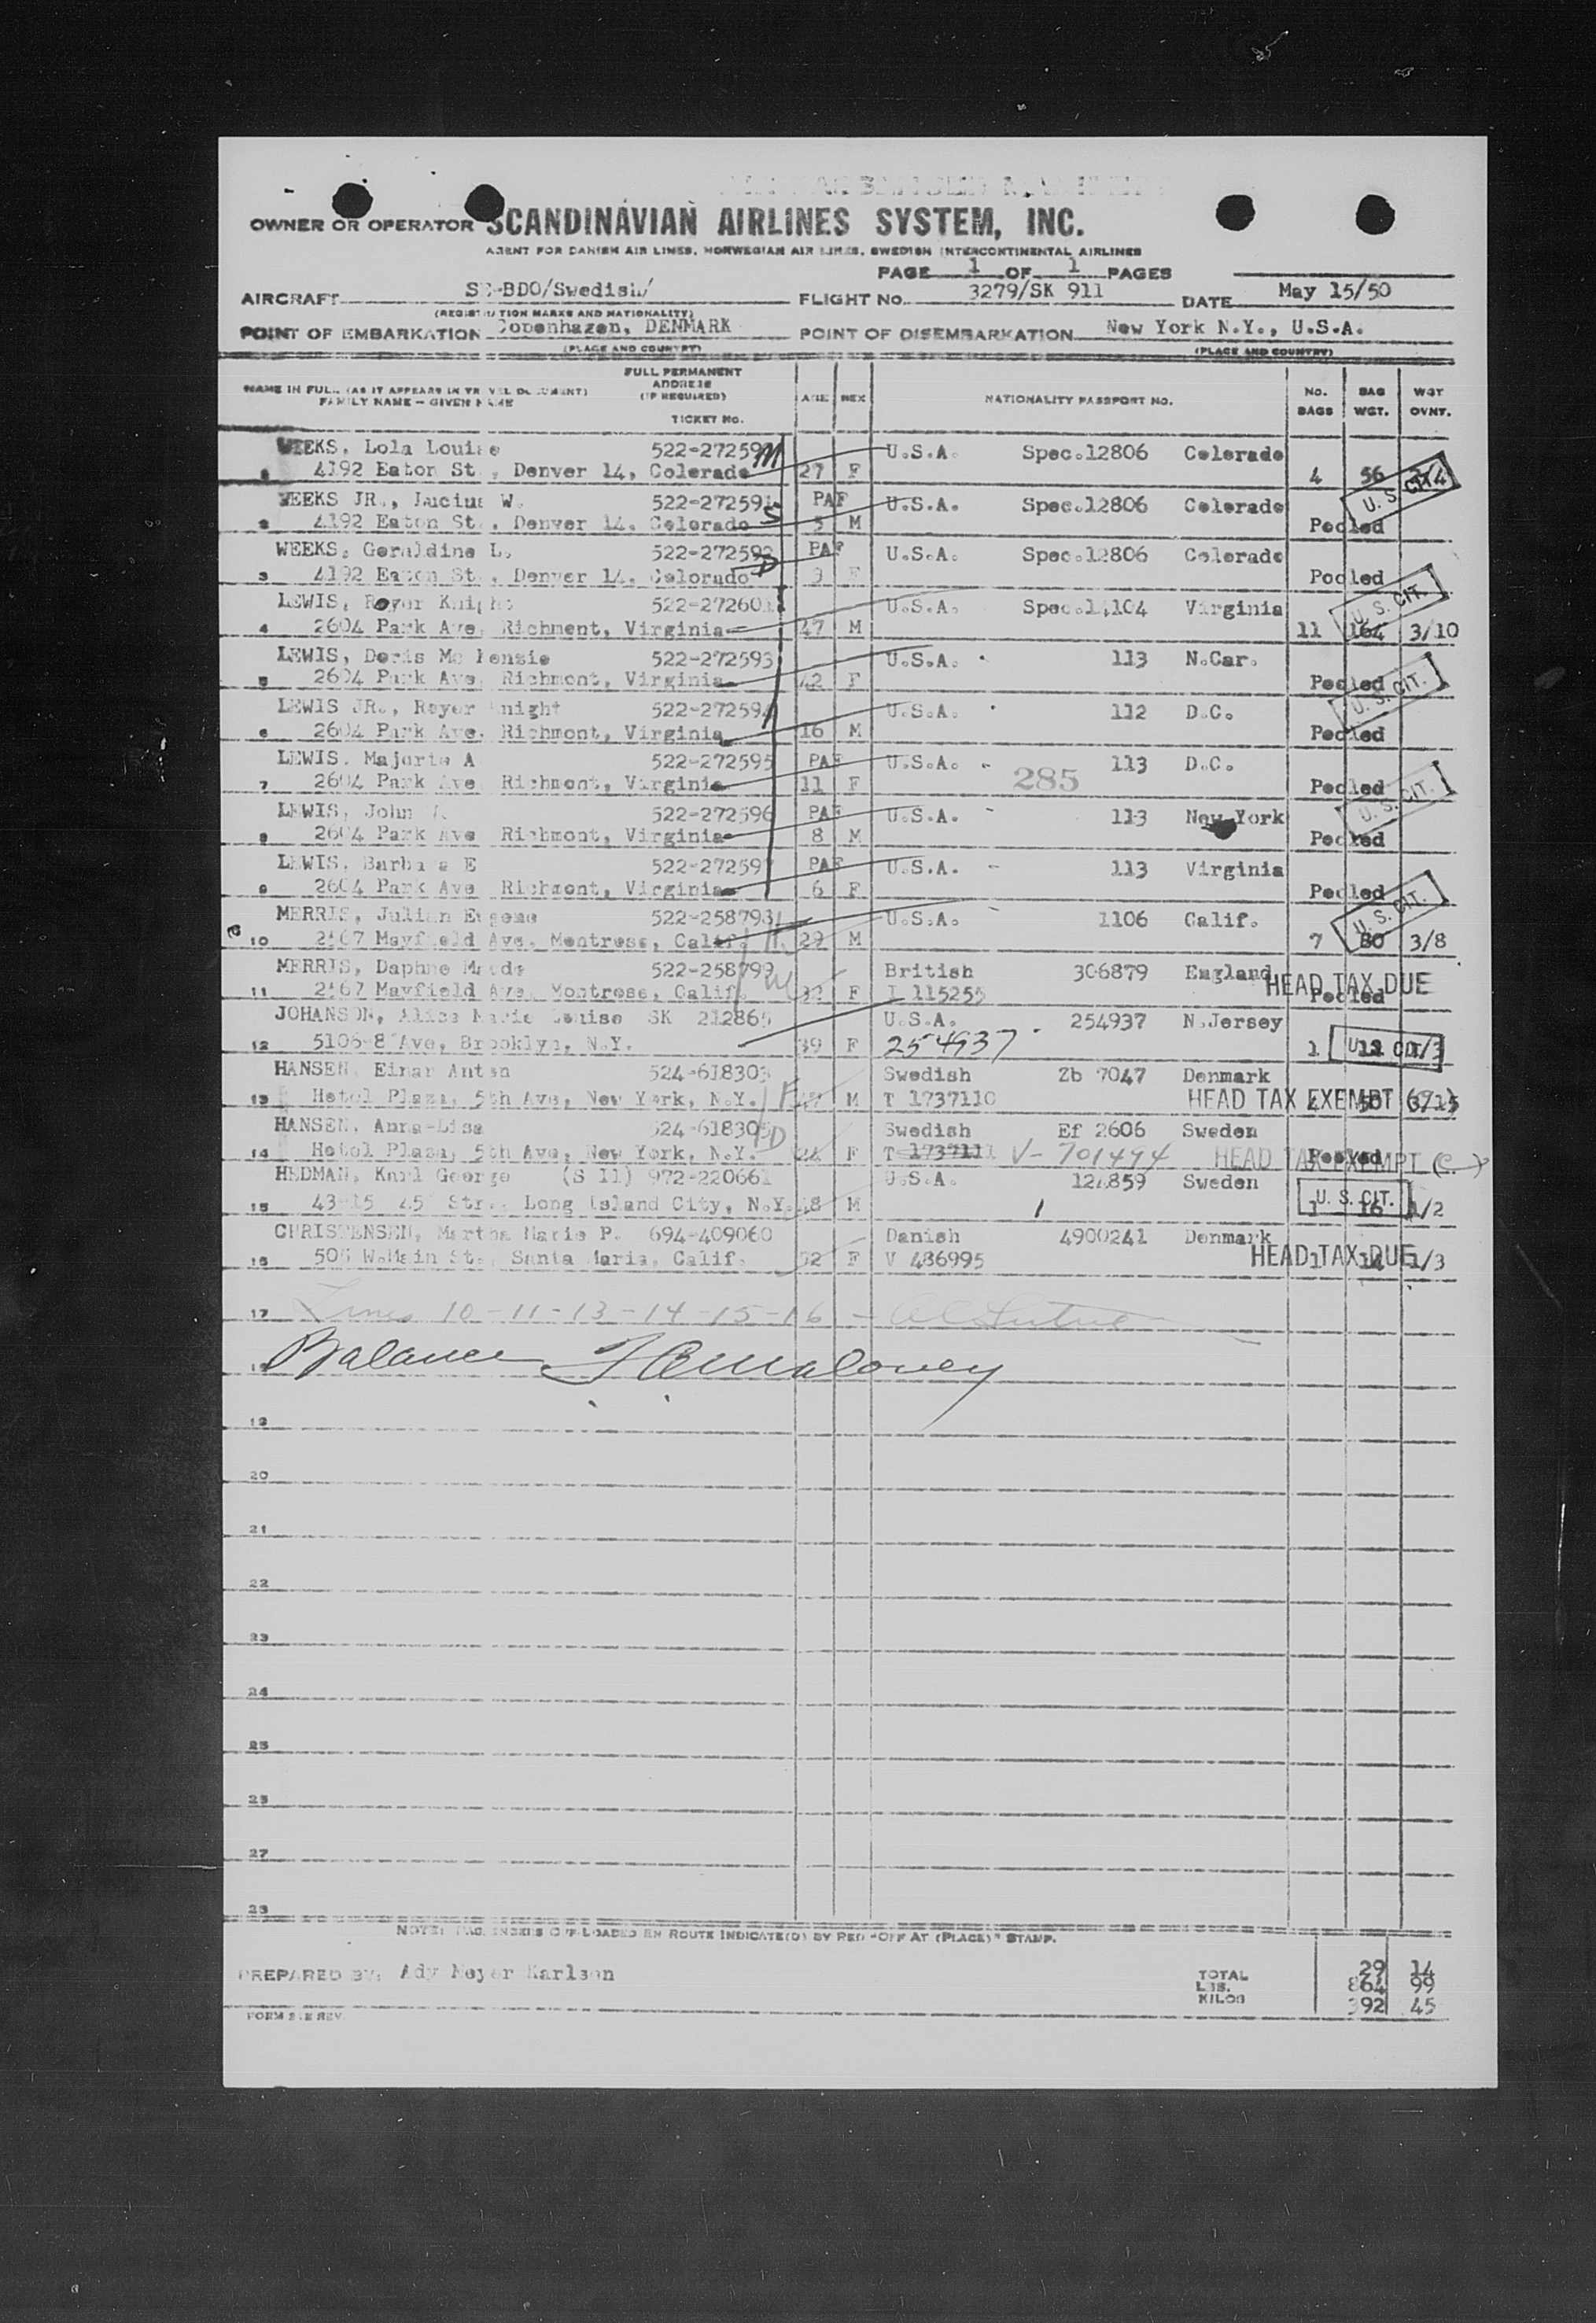 OWNER OR OPERATOR SCANDINAVIAN AIRLINES SYSTEM, INC.
AGENT FOR DANISH AIR LINES, NORWEGIAN AIR LINES, SWEDISH INTERCONTINENTAL AIRLINES
PAGE 1 OF 1 PAGES
AIRCRAFT SE-BDO/Swedish/ FLIGHT No. 3279/SK 911 DATE May 15/50
(REGISTRATION MARKS AND NATIONALITY)
POINT OF EMBARKATION Copenhagen, DENMARK POINT OF DISEMBARKATION New York N.Y., U.S.A.
(PLACE AND COUNTRY) (PLACE AND COUNTRY)
NAME IN FULL (AS IT APPEARS IN TRAVEL DOCUMENT) FAMILY NAME – GIVEN NAME FULL PERMANENT ADDRESS (IF REQUIRED) TICKET No. AGE SEX NATIONALITY PASSPORT NO. No. BAGS BAG WGT. WGT OVNT.
WEEKS, Lola Louise 522-27259 M U.S.A. Spec.12806 Colorado
4192 Eaton St., Denver 14, Colorado 27 F 4 56 U.S. CIT.
WEEKS JR., Lucius W. 522-272591 S PAF U.S.A. Spec.12806 Colorado
2 4192 Eaton St., Denver 14, Colorado 5 M Pooled
WEEKS, Geraldine L. 522-272592 D PAF U.S.A. Spec.12806 Colorado
3 4192 Eaton St., Denver 14, Colorado 3 F Pooled
LEWIS, Royer Knight 522-27260 U.S.A. Spec.14104 Virginia U.S. CIT.
4 2604 Park Ave, Richment, Virginia 47 M 11 164 3/10
LEWIS, Doris Mc Kenzie 522-272593 U.S.A. 113 N.Car.
5 2604 Park Ave, Richmont, Virginia 42 F Pooled U.S. CIT.
LEWIS JR., Royer Knight 522-272594 U.S.A. 112 D.C.
6 2604 Park Ave. Richmont, Virginia 16 M Pooled
LEWIS, Majorie A 522-272595 PAF U.S.A. 113 D.C.
7 2604 Park Ave Richmont, Virginia 11 F 285 Pooled U.S. CIT.
LEWIS, John 522-272596 PAF U.S.A. 113 New York
8 2604 Park Ave Richmont, Virginia 8 M Pooled
LEWIS, Barbara E 522-272597 PAF U.S.A. 113 Virginia
9 2604 Park Ave Richmont, Virginia 6 F Pooled
MERRIS, Julian Eugene 522-258793 U.S.A. 1106 Calif. U.S. CIT.
10 2567 Mayfield Ave. Montrose, Calif. 29 M 7 80 3/8
MERRIS, Daphne Maude 522-258799 British 306879 England HEAD TAX DUE
11 2567 Mayfield Ave Montrose, Calif. F I 115255 Pooled
JOHANSON, Alice Marie Louise SK 212865 U.S.A. 254937 N.Jersey
12 5106-8 Ave, Brooklyn, N.Y. 39 F 254937 1 U.S. CIT.
HANSEN, Einar Anton 524-618303 Swedish Zb 7047 Denmark
13 Hotel Plaza, 5th Ave, New York, N.Y. M T 1737110 HEAD TAX EXEMPT
HANSEN, Anna-Lisa 524-618305 D Swedish Ef 2606 Sweden
14 Hotel Plaza, 5th Ave, New York, N.Y. F T 1737111 V-701494 HEAD TAX EXEMPT Pooled
HEDMAN, Karl George (S 11) 972-220661 U.S.A. 124859 Sweden
15 43-15 45 Str., Long Island City, N.Y. 48 M 1 16 1/2 U.S. CIT.
CHRISTENSEN, Martha Marie P. 694-409060 Danish 4900241 Denmark
16 505 W.Main St., Santa Maria, Calif. 52 F V 486995 HEAD TAX DUE 1 14 1/3
17 Lines 10-11-13-14-15-16 –
Balance
19
20
21
22
23
24
25
26
27
28
NOTE: PASSENGERS OFF-LOADED EN ROUTE INDICATE(D) BY RED "OFF AT (PLACE)" STAMP.
PREPARED BY: Ady Meyer Karlsen
TOTAL 29 14
LBS. 864 99
KILOS 392 45
FORM S.E REV.